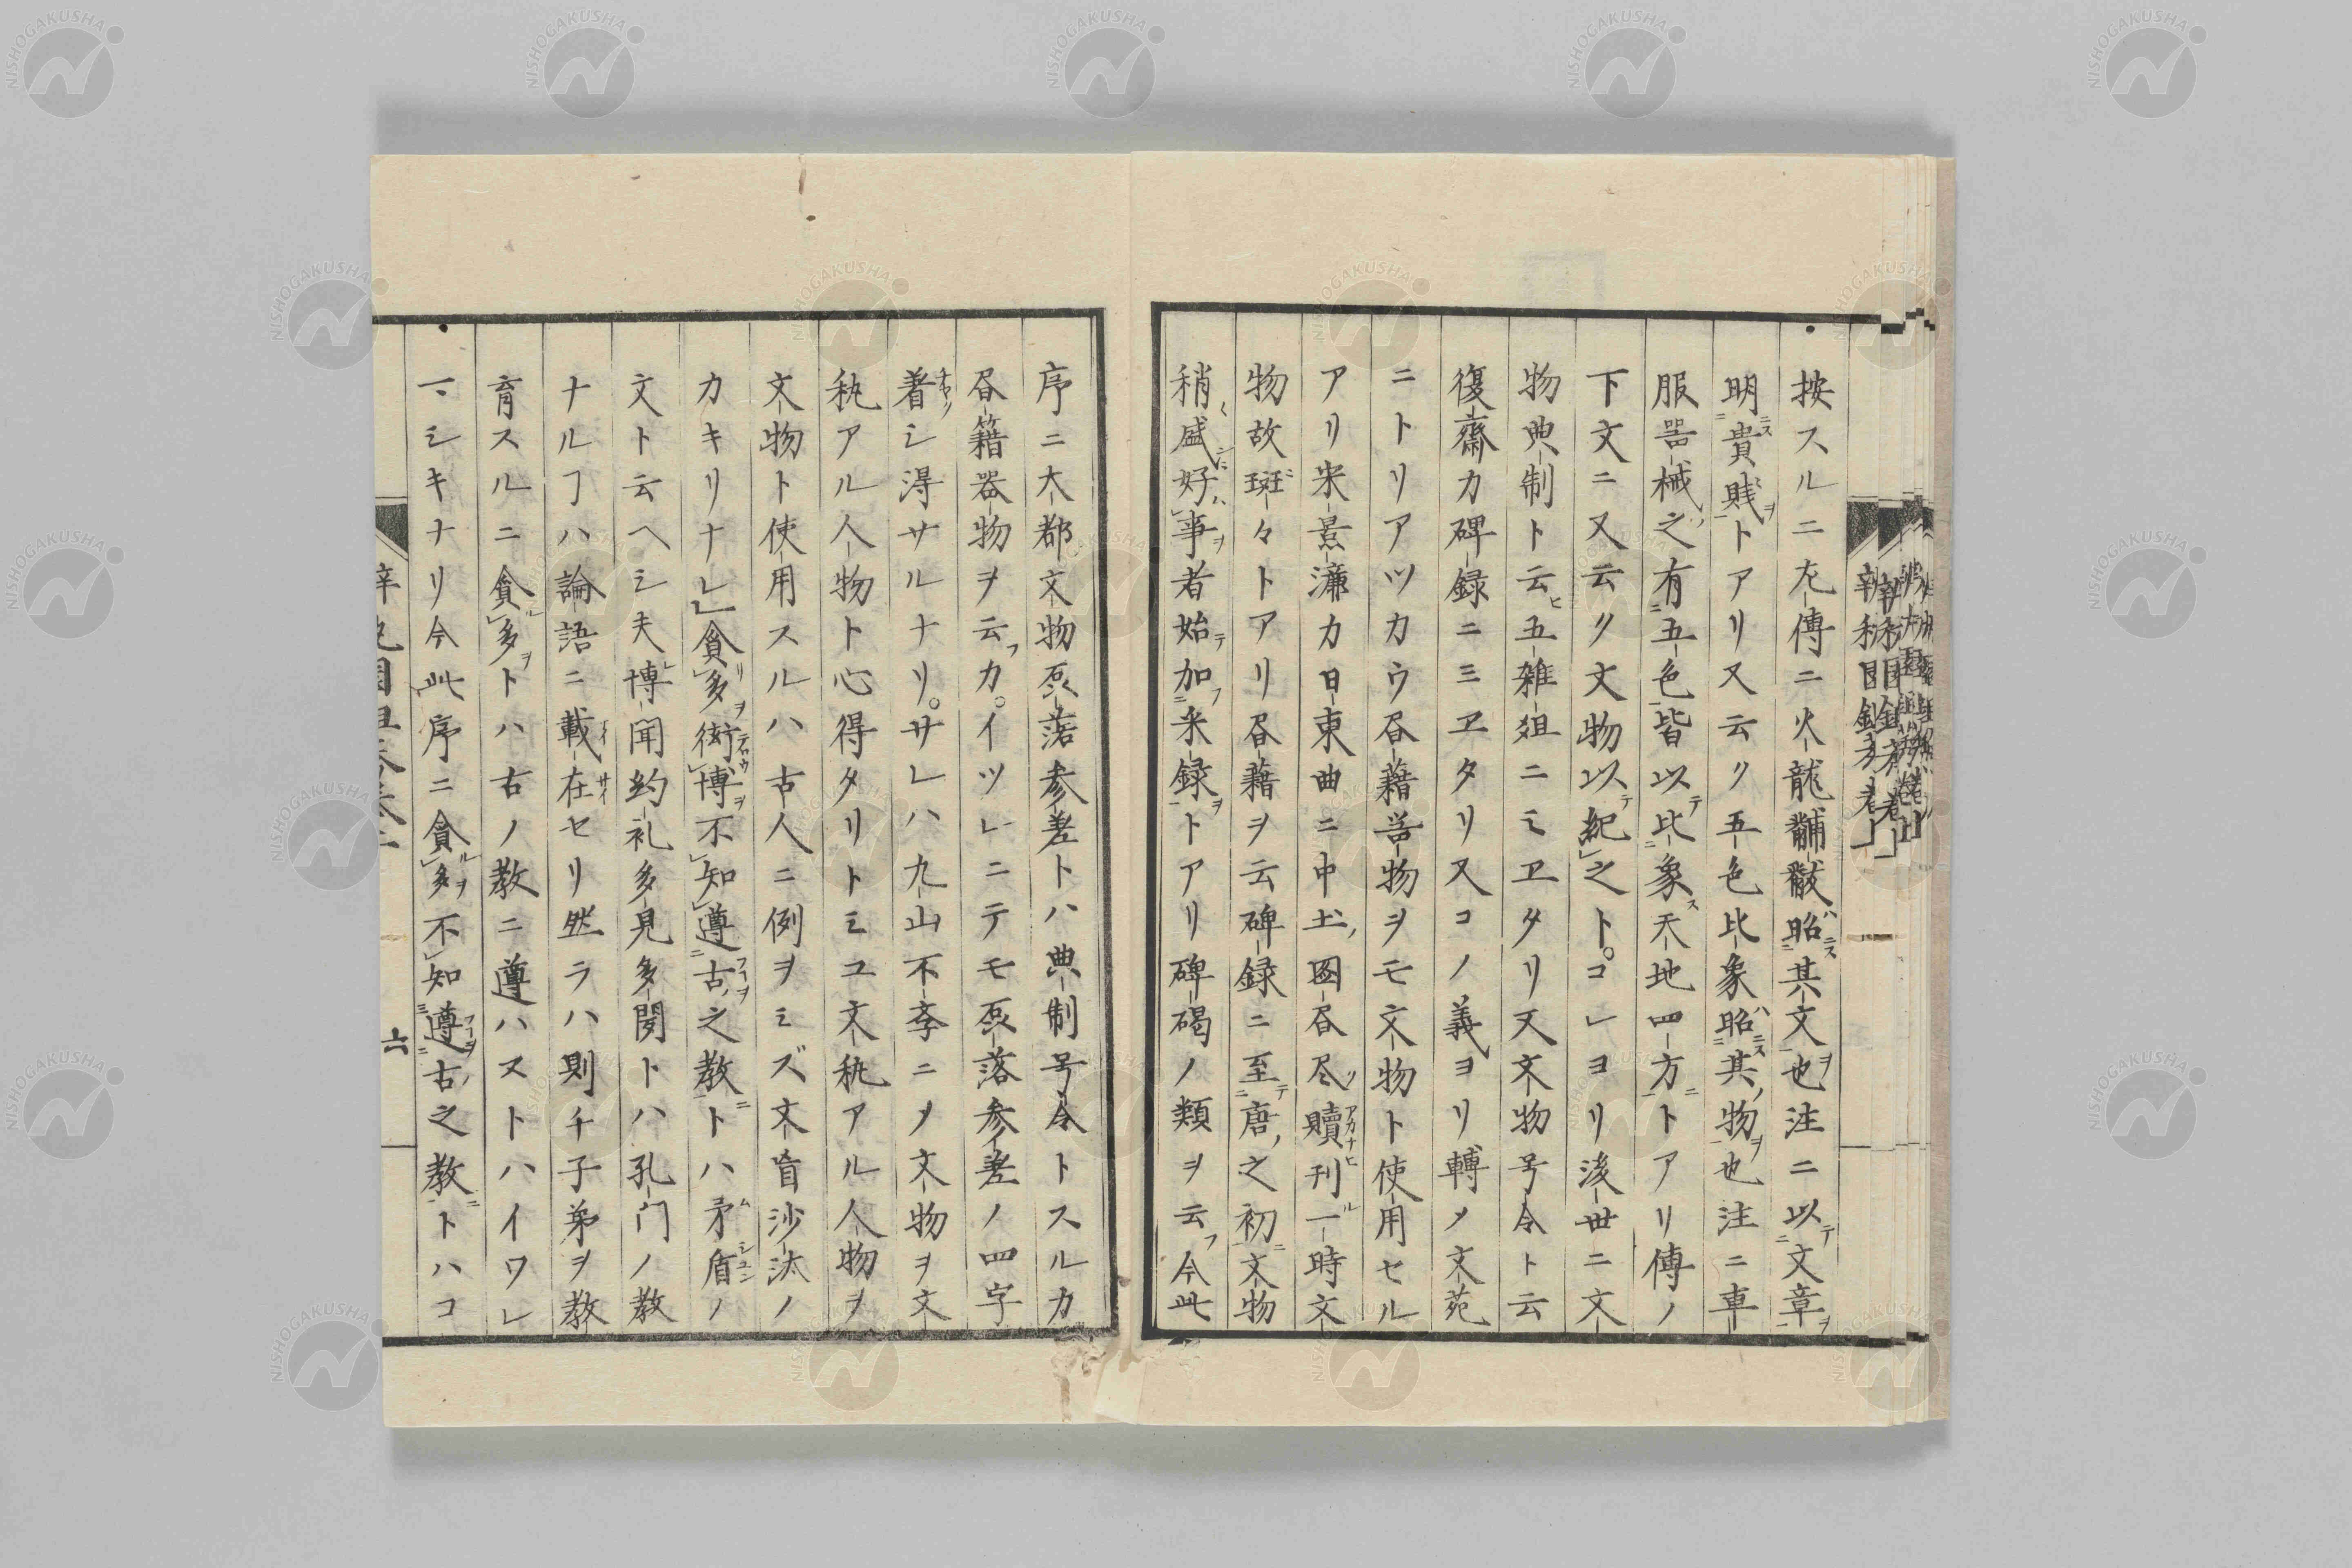 按スルニ左傳ニ火龍黼黻昭其文也注ニ以文章
明貴賎トアリ又云ク五色比象昭其物也注ニ車
服噐械之有五色皆以比象天地四方トアリ傳ノ
下文ニ又云ク文物以紀之ト。コレヨリ後世ニ文
物典制ト云五雑俎ニミヱタリ又文物号令ト云
復齋カ碑録ニミヱタリ又コノ義ヨリ轉メ文苑
ニトリアツカウ書籍器物ヲモ文物ト使用セル
アリ宋景濂カ日東曲ニ中土圖書尽贖刊一時文
物故斑々トアリ書籍ヲ云碑録ニ至唐之初文物
稍盛好事者始加采録トアリ碑碣ノ類ヲ云今此
序ニ大都文物磊落参差トハ典制号令トスルカ
書籍器物ヲ云カ。イツレニテモ磊落参差ノ四字
着シ得サルナリ。サレハ九山不李ニメ文物ヲ文
秇アル人物ト心得タリトミユ文秇アル人物ヲ
文物ト使用スルハ古人ニ例ヲミズ文盲沙汰ノ
カキリナレ貪多衒博不知遵古之教トハ矛盾ノ
文ト云ヘシ夫博聞約礼多見多聞トハ孔门ノ教
ナルヿハ論語ニ載在セリ然ラハ則チ子弟ヲ教
育スルニ貪多トハ古ノ教ニ遵ハヌトハイワレ
マシキナリ今此序ニ貪多不知遵古之教トハコ
六